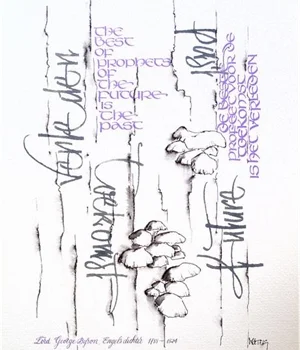 THE
BEST
OF
PROPHETS
OF
THE
FUTURE
IS
THE
PAST
Past
Verleden
DE BESTE
PROFEET VOOR DE
TOEKOMST
IS HET VERLEDEN
Toekomst
Future
Lord George Byron, Engels dichter 1788 - 1824